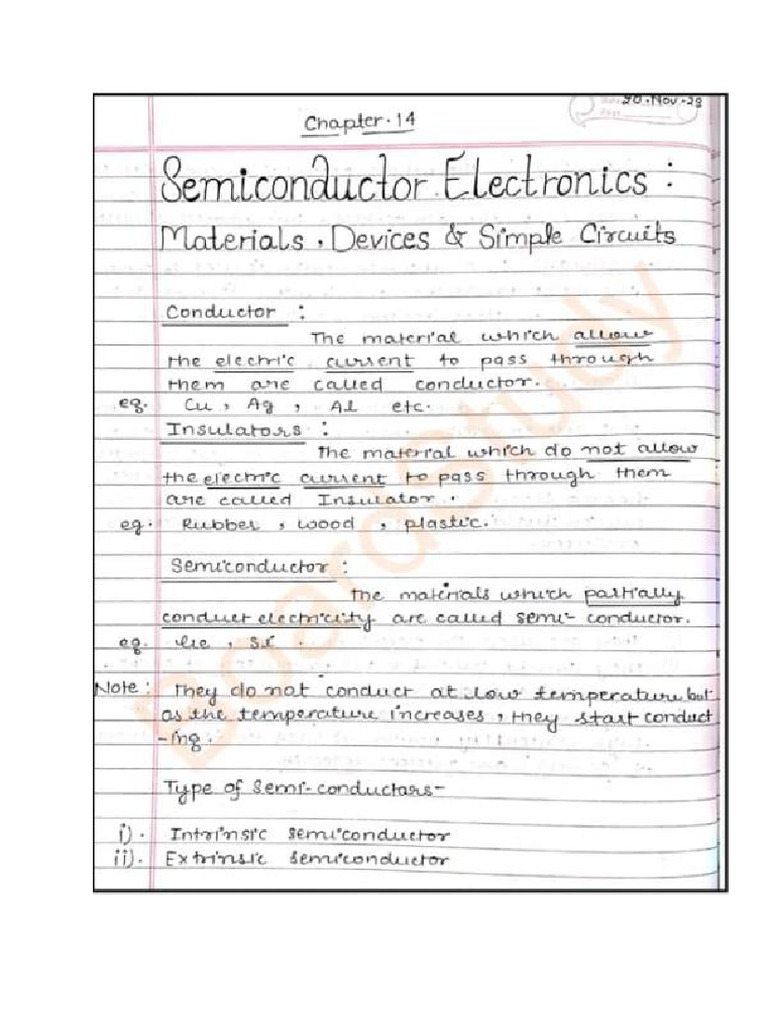 30.Nov.23
Chapter.14
Semiconductor Electronics :
Materials, Devices & Simple Circuits
Conductor :
The material which allow
the electric current to pass through
them are called conductor.
eg. Cu, Ag, Al etc.
Insulators :
The material which do not allow
the electric current to pass through them
are called Insulator.
eg. Rubber, wood, plastic.
Semiconductor :
The materials which partially
conduct electricity are called semi- conductor.
eg. Ge, Si.
Note : They do not conduct at low temperature but
as the temperature increases, they start conduct
-ing.
Type of semi-conductors-
i). Intrinsic semiconductor
ii). Extrinsic semiconductor
BoardStudy